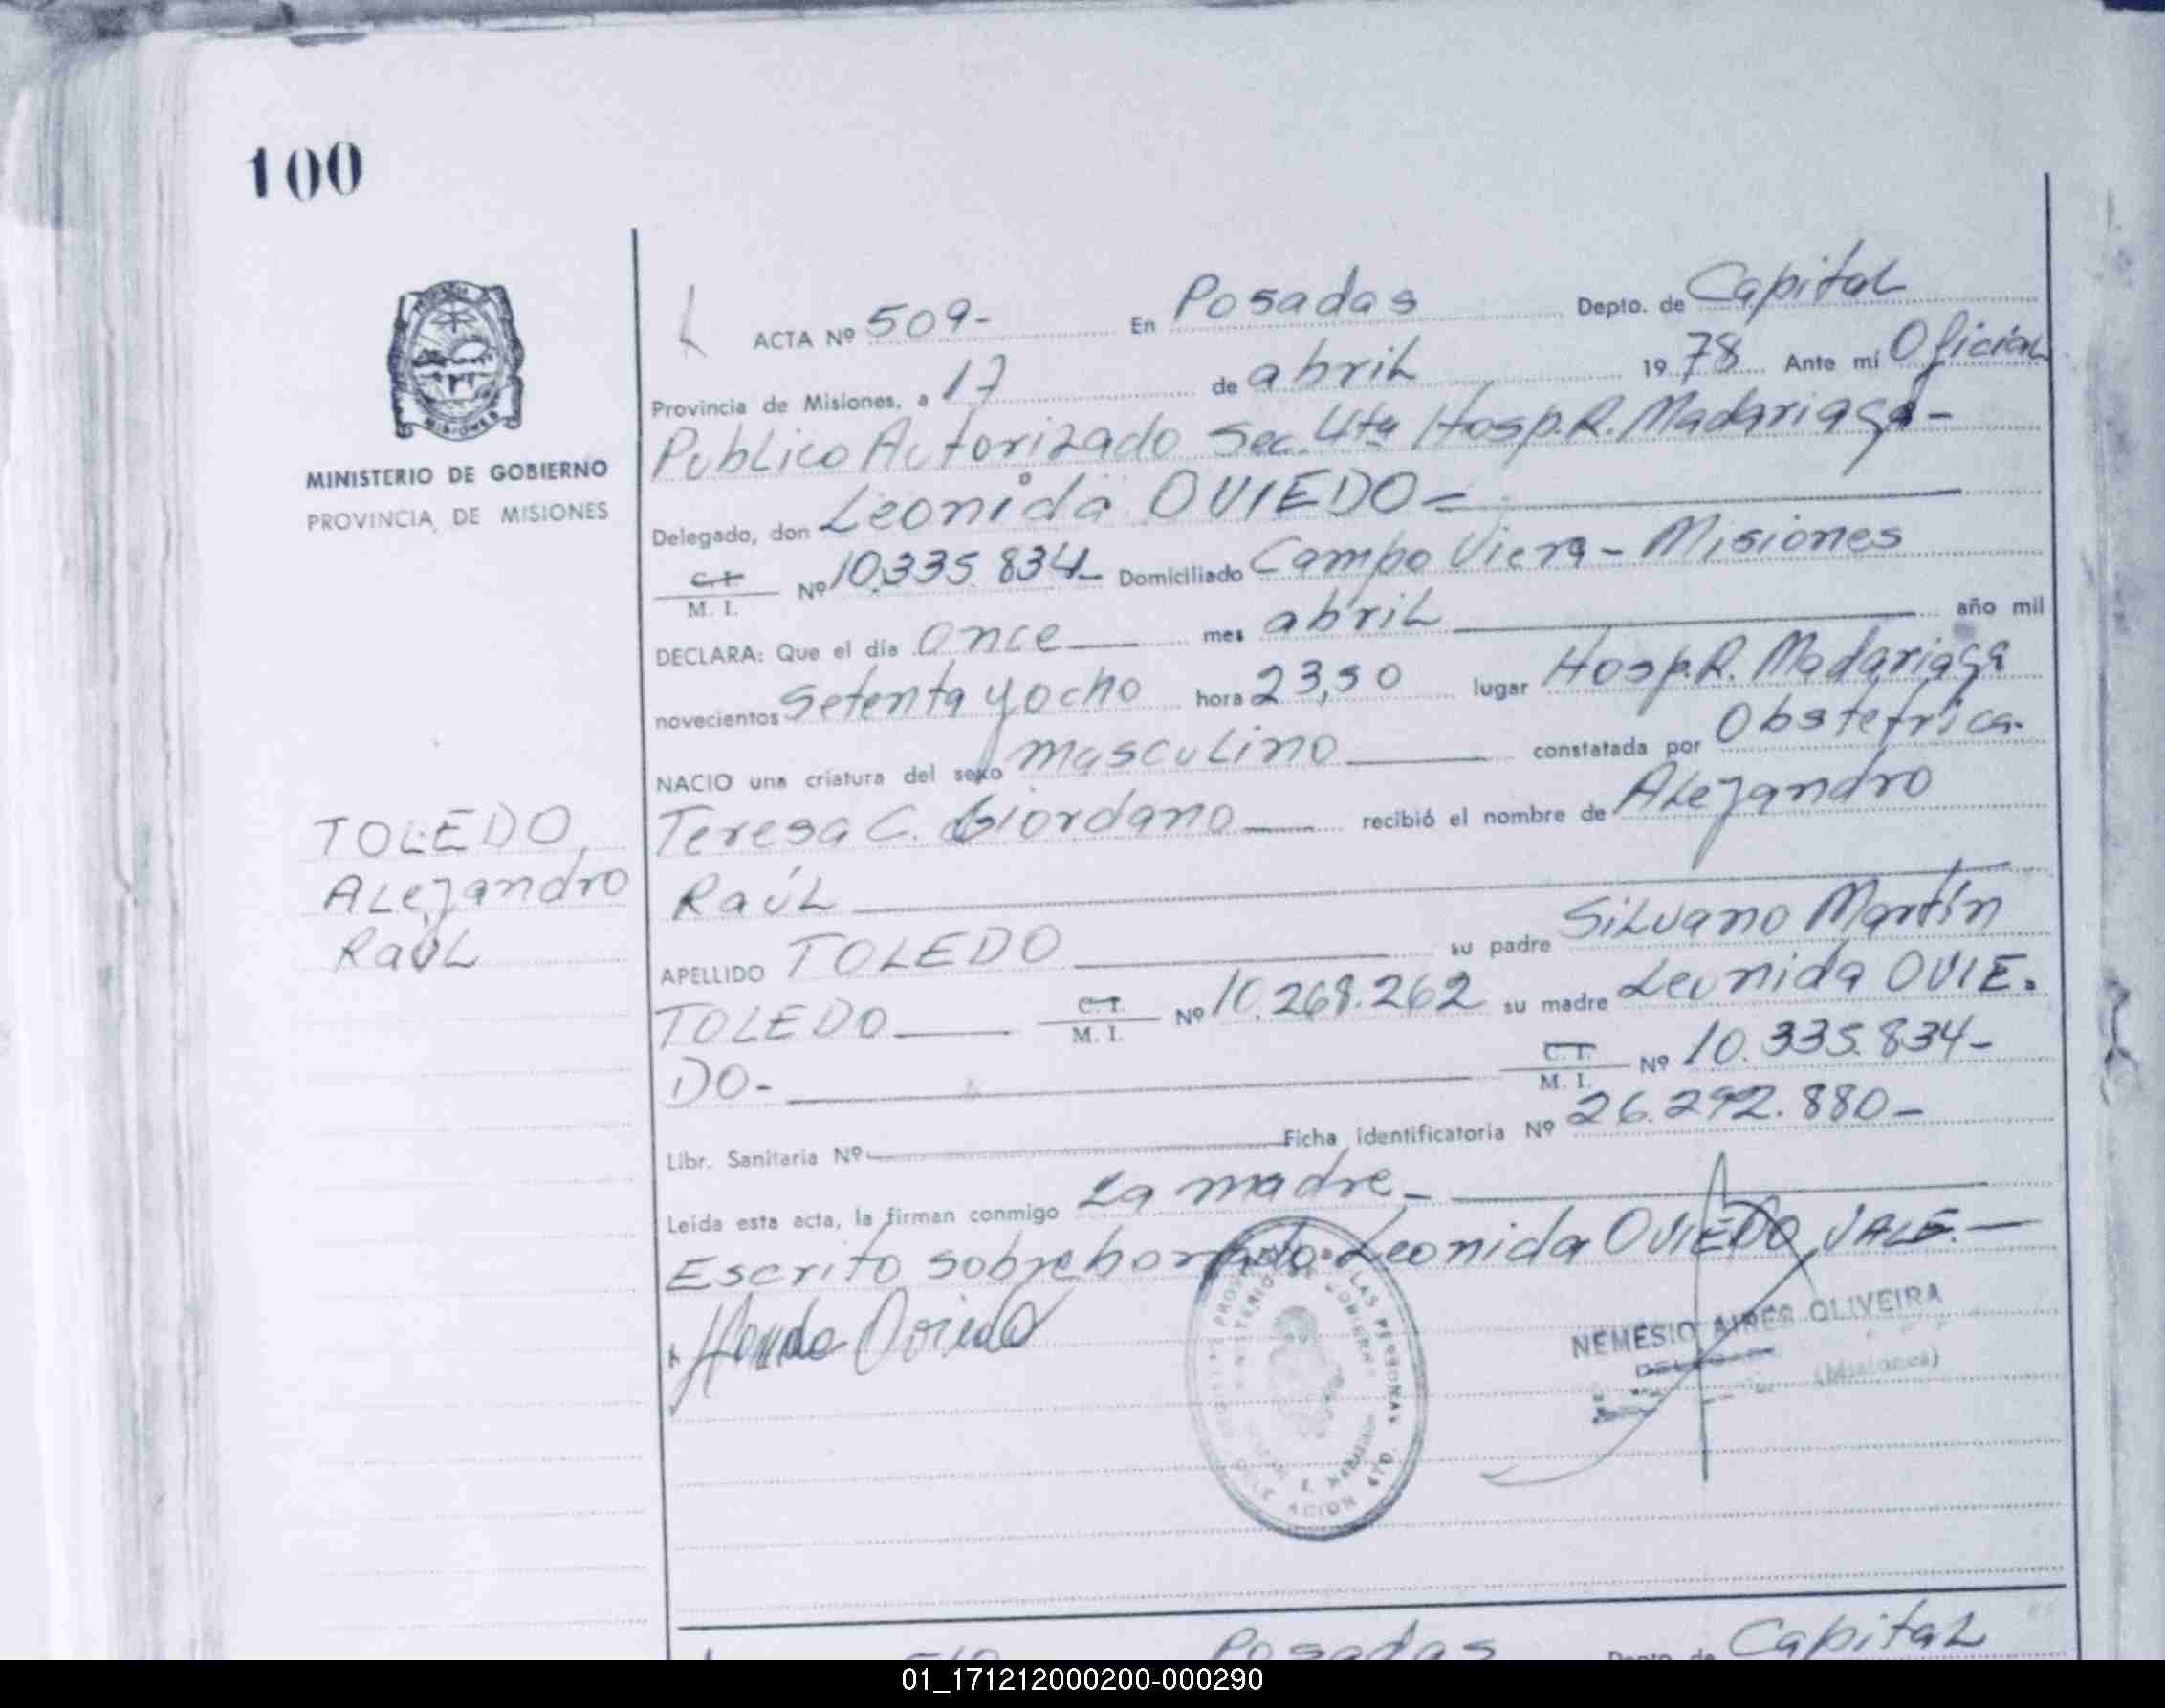 100
MINISTERIO DE GOBIERNO
PROVINCIA DE MISIONES
ACTA Nº 509- En Posadas Depto. de Capital
Provincia de Misiones, a 17 de abril 1978 Ante mí Oficial
Publico Autorizado Sec. 4ta Hosp. R. Madariaga-
Delegado, don Leonida OVIEDO=
C.I. M. I. Nº 10.335.834- Domiciliado Campo Viera - Misiones
DECLARA: Que el día once mes abril año mil
novecientos setenta y ocho hora 23,50 lugar Hosp. R. Madariaga
NACIO una criatura del sexo masculino constatada por Obstetrica.
Teresa C. Giordano recibió el nombre de Alejandro
Raúl
APELLIDO TOLEDO su padre Silvano Martín
TOLEDO C.I. M. I. Nº 10.268.262 su madre Leonida OVIE.
DO- C.I. M. I. Nº 10.335.834-
Libr. Sanitaria Nº Ficha identificatoria Nº 26.292.880-
Leída esta acta, la firman conmigo La madre-
Escrito sobre borrado: Leonida OVIEDO, VALE.-
TOLEDO,
Alejandro
Raúl
Oviedo
NEMESIO AIRES OLIVEIRA
DELEGADO
(Misiones)
LAS PERSONAS
Posadas Depto. de Capital
01_171212000200-000290